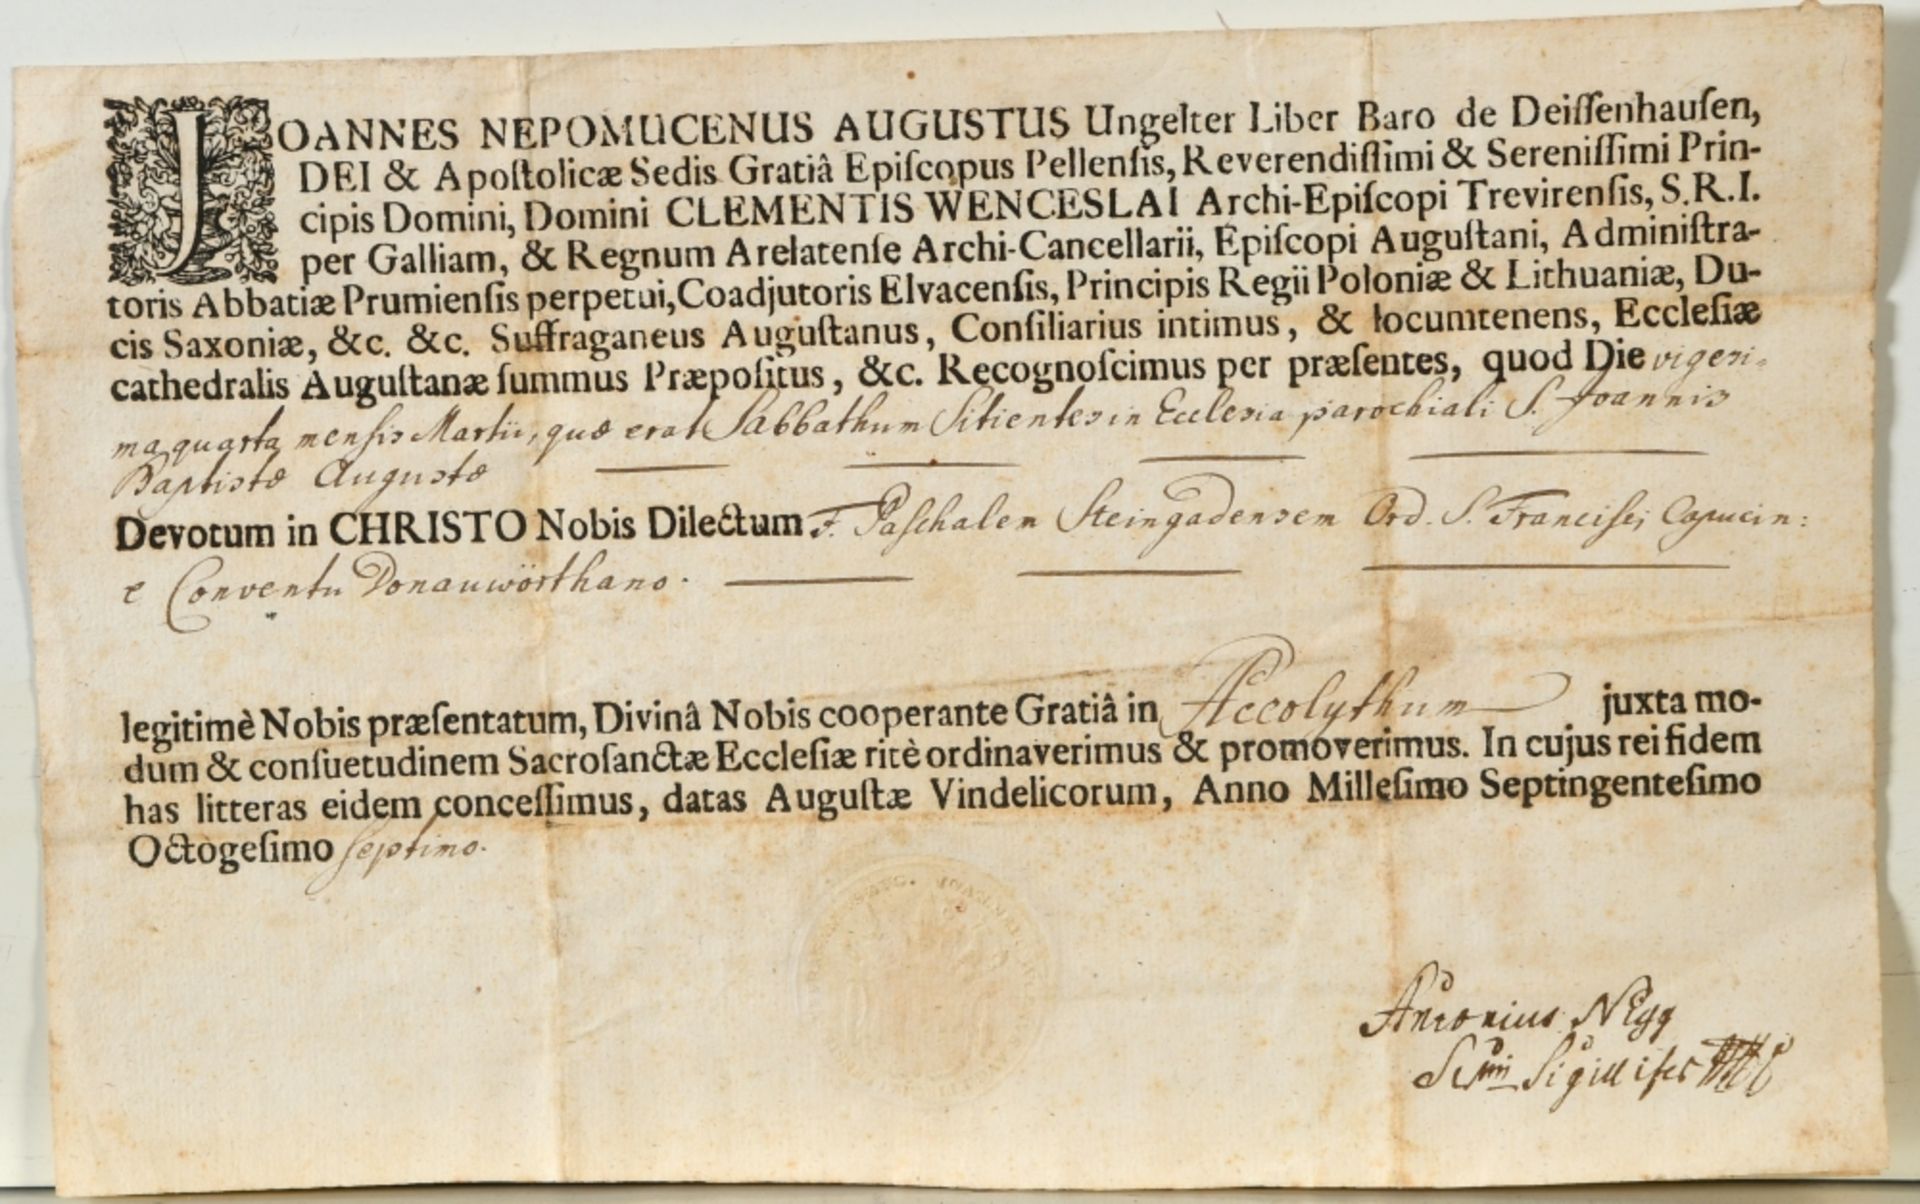 JOANNES NEPOMUCENUS AUGUSTUS Ungelter Liber Baro de Deiſſenhauſen,
DEI & Apoſtolicæ Sedis Gratiâ Epiſcopus Pellenſis, Reverendiſſimi & Sereniſſimi Prin-
cipis Domini, Domini CLEMENTIS WENCESLAI Archi-Epiſcopi Trevirenſis, S.R.I.
per Galliam, & Regnum Arelatenſe Archi-Cancellarii, Epiſcopi Auguſtani, Adminiſtra-
toris Abbatiæ Prumienſis perpetui, Coadjutoris Elvacenſis, Principis Regii Poloniæ & Lithuaniæ, Du-
cis Saxoniæ, &c. &c. Suffraganeus Auguſtanus, Conſiliarius intimus, & locumtenens, Eccleſiæ
cathedralis Auguſtanæ ſummus Præpoſitus, &c. Recognoſcimus per præſentes, quod Die vigesi-
ma quarta menſis Martii, quæ erat Sabbathum Sitientes in Ecclesia parochiali S. Joannis
Baptistæ Augustæ
Devotum in CHRISTO Nobis Dilectum F. Paſchalem Steingadensem Ord. S. Franciſci Capucin:
e Conventu Donauwörthano.
legitimè Nobis præſentatum, Divinâ Nobis cooperante Gratiâ in Accolythum juxta mo-
dum & conſuetudinem Sacroſanctæ Eccleſiæ ritè ordinaverimus & promoverimus. In cujus rei fidem
has litteras eidem conceſſimus, datas Auguſtæ Vindelicorum, Anno Milleſimo Septingenteſimo
Octogeſimo ſeptimo.
Antonius Nigg
Sigillifer